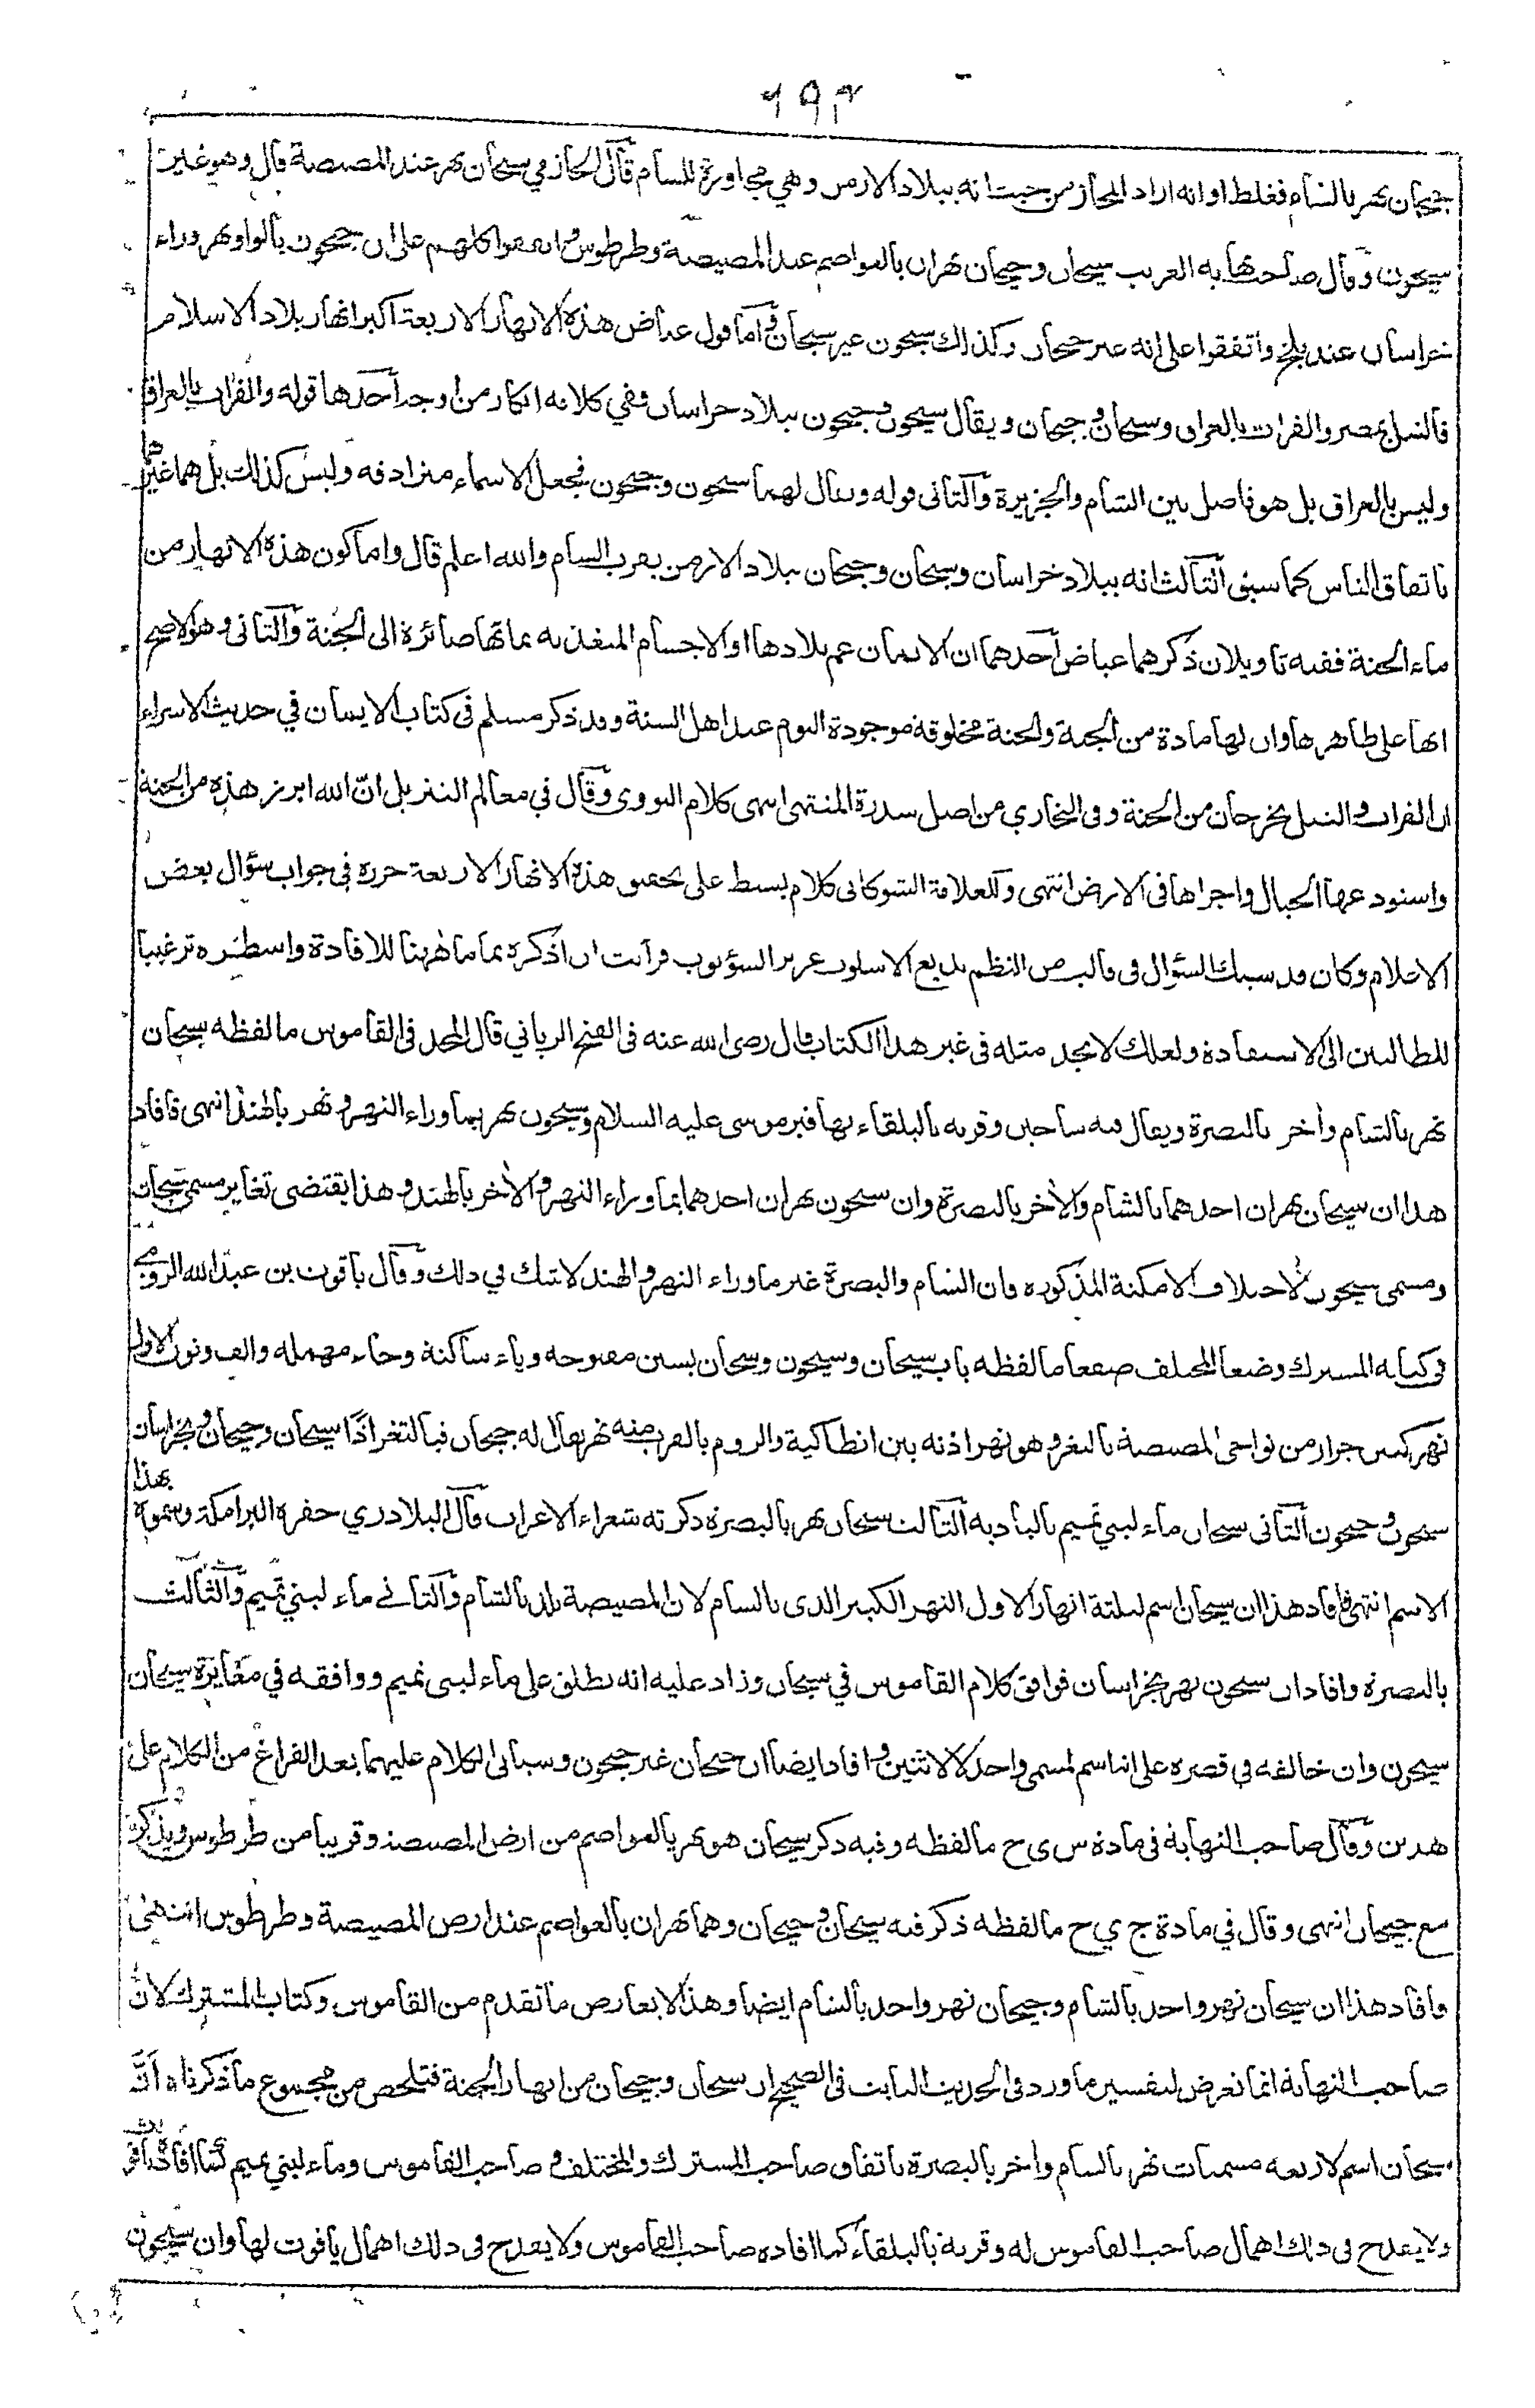 ٦٩٣
جيحان نهر بالشام فغلط او انه اراد المجاز من حيث انه ببلاد الارمن وهي مجاورة للشام قال الحازمي سيحان نهر عند المصيصة قال وهو غير
سيحون وقال صاحب نهاية الغريب سيحان وجيحان نهران بالعواصم عند المصيصة وطرطوس واتفقوا كلهم على ان جيحون بالواو نهر وراء
خراسان عند بلخ واتفقوا على انه غير جيحان وكذلك سيحون غير سيحان واما قول عياض هذه الانهار الاربعة اكبر انهار بلاد الاسلام
فالنيل بمصر والفرات بالعراق وسيحان وجيحان ويقال سيحون وجيحون ببلاد خراسان ففي كلامه انكار من اوجه احدها قوله والفرات بالعراق
وليس بالعراق بل هو فاصل بين الشام والجزيرة والثانى قوله ويقال لهما سيحون وجيحون فجعل الاسماء مترادفه وليس كذلك بل هما غيرهما
باتفاق الناس كما سبق الثالث انه ببلاد خراسان وسيحان وجيحان ببلاد الارمن بقرب الشام والله اعلم قال واما كون هذه الانهار من
ماء الجنة ففيه تاويلان ذكرهما عياض احدهما ان الايمان عم بلادها او الاجسام المتغذيه بمائها صائرة الى الجنة والثانى وهو الاصح
انها على ظاهرها وان لها مادة من الجنة والجنة مخلوقة موجودة اليوم عند اهل السنة وقد ذكر مسلم فى كتاب الايمان في حديث الاسراء
ان الفرات والنيل يخرجان من الجنة وفى البخاري من اصل سدرة المنتهى انتهى كلام النووى وقال في معالم التنزيل انّ الله ابرز هذه من الجنة
واستودعها الجبال واجراها فى الارض انتهى وللعلامة الشوكانى كلام بسط على تحقيق هذه الانهار الاربعة حرره فى جواب سؤال بعض
الاعلام وكان قد سبك السؤال فى قالب من النظم بديع الاسلوب عزيز الشؤبوب فرأيت ان اذكره بتمامه ههنا للافادة واسطره ترغيبا
للطالبين الى الاستفادة ولعلك لا تجد مثله فى غير هذا الكتاب قال رضى الله عنه فى الفتح الرباني قال المجد فى القاموس ما لفظه سيحان
نهر بالشام وأخر بالبصرة ويقال فيه ساحين وقريه بالبلقاء بها قبر موسى عليه السلام وسيحون نهر بما وراء النهر ونهر بالهند انتهى فافاد
هذا ان سيحان نهران احدهما بالشام والأخر بالبصرة وان سيحون نهران احدهما بما وراء النهر والأخر بالهند وهذا يقتضى تغاير مسمى سيحان
ومسمى سيحون لاختلاف الامكنة المذكوره فان الشام والبصرة غير ما وراء النهر والهند لاشك في ذلك وقال ياقوت بن عبد الله الرومي
فى كتابه المشترك وضعا المختلف صقعا ما لفظه باب سيحان وسيحون وسيحان بسين مفتوحه وياء ساكنة وحاء مهمله والف ونون الاول
نهر كبير جرار من نواحى المصيصة بالثغر وهو نهر اذنه بين انطاكية والروم بالقرب منه نهر يقال له جيحان فبالثغر اذًا سيحان وجيحان وبخراسان
سيحون وجيحون الثانى سيحان ماء لبني تميم بالباديه الثالث سيحان نهر بالبصرة ذكرته شعراء الاعراب قال البلاذري حفره البرامكة وسموه بهذا
الاسم انتهى فافاد هذا ان سيحان اسم لثلثة انهار الاول النهر الكبير الذى بالشام لان المصيصة بلد بالشام والثانى ماء لبني تميم والثالث
بالبصرة وافاد ان سيحون نهر بخراسان فوافق كلام القاموس في سيحان وزاد عليه انه يطلق على ماء لبنى تميم ووافقه في مغايرة سيحان
سيحون وان خالفه في قصره على انه اسم لمسمى واحد لا لاثنين وافاد ايضا ان جيحان غير جيحون وسياتى الكلام عليهما بعد الفراغ من الكلام على
هذين وقال صاحب النهاية فى مادة س ى ح ما لفظه وفيه ذكر سيحان هو نهر بالعواصم من ارض المصيصة وقريبا من طرطوس ويذكر
مع جيحان انتهى وقال في مادة ج ي ح ما لفظه ذكر فيه سيحان وجيحان وهما نهران بالعواصم عند ارض المصيصة وطرطوس انتهى
وافاد هذا ان سيحان نهر واحد بالشام وجيحان نهر واحد بالشام ايضا وهذا لا يعارض ما تقدم من القاموس وكتاب المشترك لانّ
صاحب النهاية انما تعرض لتفسير ما ورد فى الحديث الثابت فى الصحيح ان سيحان وجيحان من انهار الجنة فتلخص من مجموع ما ذكرناه انّ
سيحان اسم لاربعه مسميات نهر بالشام وأخر بالبصرة باتفاق صاحب المشترك والمختلف وصاحب القاموس وماء لبني تميم كما افاده ياقوت
ولا يقدح فى ذلك اهمال صاحب القاموس له وقرية بالبلقاء كما افاده صاحب القاموس ولا يقدح فى ذلك اهمال ياقوت لها وان سيحون